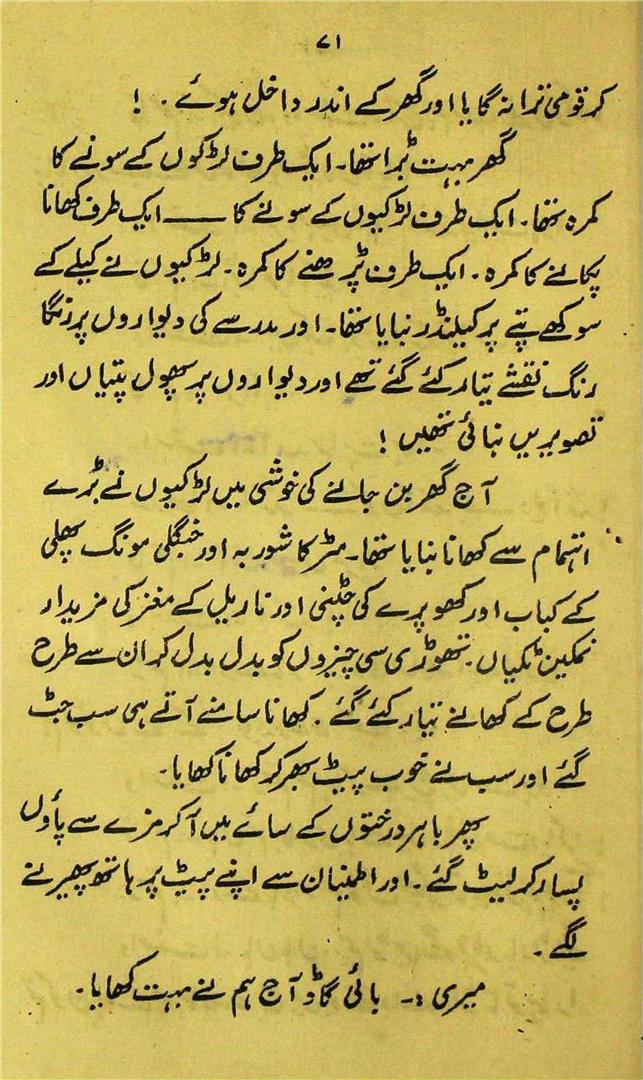 ۷۱
کر قومی ترانہ گایا اور گھر کے اندر داخل ہوئے . !
گھر بہت بڑا تھا۔ ایک طرف لڑکوں کے سونے کا
کمرہ تھا۔ ایک طرف لڑکیوں کے سونے کا ـــــ ایک طرف کھانا
پکانے کا کمرہ۔ ایک طرف پڑھنے کا کمرہ۔ لڑکیوں نے کیلے کے
سوکھے پتے پر کیلنڈر بنایا تھا۔ اور مدرسے کی دیواروں پر رنگا
رنگ نقشے تیار کئے گئے تھے اور دیواروں پر پھول پتیاں اور
تصویریں بنائی تھیں !
آج گھر بن جانے کی خوشی میں لڑکیوں نے بڑے
اہتمام سے کھانا بنایا تھا۔ مٹر کا شوربہ اور جنگلی مونگ پھلی
کے کباب اور کھوپرے کی چٹنی اور ناریل کے مغز کی مزیدار
نمکین ٹکیاں۔ تھوڑی سی چیزوں کو بدل بدل کر ان سے طرح
طرح کے کھانے تیار کئے گئے۔ کھانا سامنے آتے ہی سب جٹ
گئے اور سب نے خوب پیٹ بھر کر کھانا کھایا۔
پھر باہر درختوں کے سائے میں آکر مزے سے پاؤں
پسار کر لیٹ گئے۔ اور اطمنیان سے اپنے پیٹ پر ہاتھ پھیرنے
لگے۔
میری :۔ بائی گاڈ آج ہم نے بہت کھایا۔